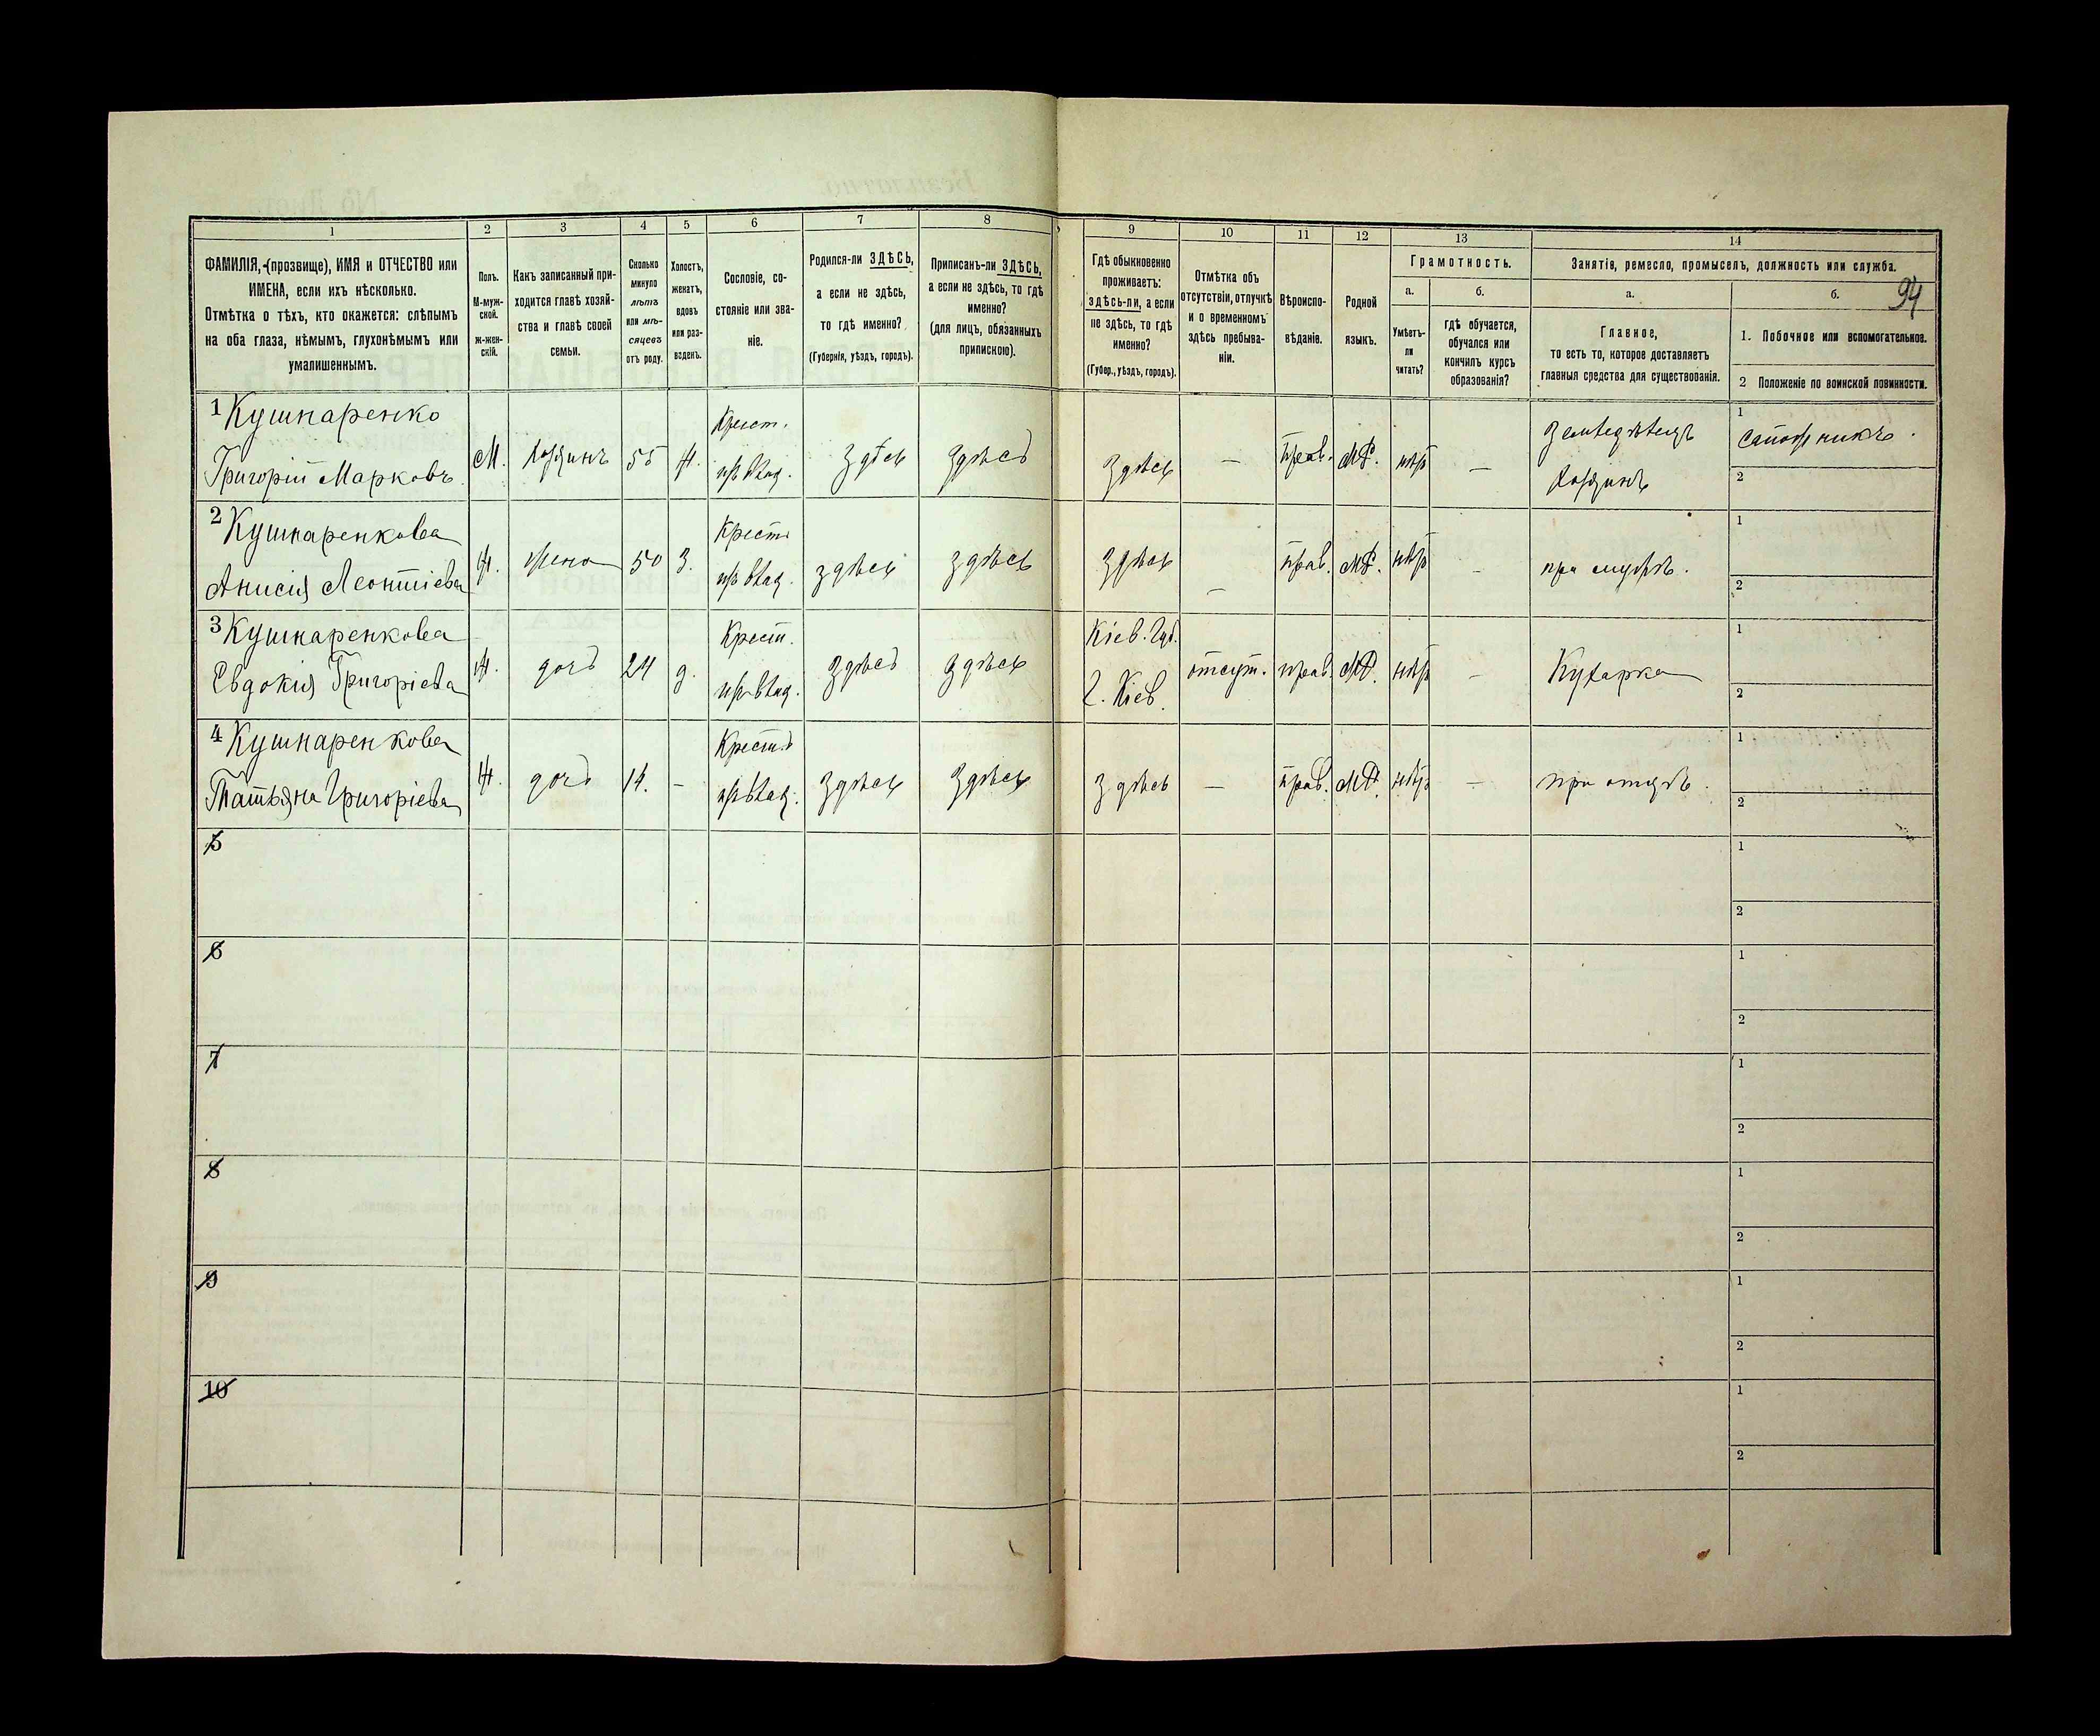 94
1 2 3 4 5 6 7 8 9 10 11 12 13 14
ФАМИЛІЯ, (прозвище), ИМЯ и ОТЧЕСТВО или
ИМЕНА, если ихъ нѣсколько.
Отмѣтка о тѣхъ, кто окажется: слѣпымъ
на оба глаза, нѣмымъ, глухонѣмымъ или
умалишеннымъ.
Полъ.
М-муж-
ской.
ж-жен-
скій.
Какъ записанный при-
ходится главѣ хозяй-
ства и главѣ своей
семьи.
Сколько
минуло
лѣтъ
или мѣ-
сяцевъ
отъ роду.
Холостъ,
женатъ,
вдовъ
или раз-
веденъ.
Сословіе, со-
стояніе или зва-
ніе.
Родился-ли ЗДѢСЬ,
а если не здѣсь,
то гдѣ именно?
(Губернія, уѣздъ, городъ).
Приписанъ-ли ЗДѢСЬ,
а если не здѣсь, то гдѣ
именно?
(для лицъ, обязанныхъ
припискою).
Гдѣ обыкновенно
проживаетъ:
здѣсь-ли, а если
не здѣсь, то гдѣ
именно?
(Губер., уѣздъ, городъ).
Отмѣтка объ
отсутствіи, отлучкѣ
и о временномъ
здѣсь пребыва-
ніи.
Вѣроиспо-
вѣданіе.
Родной
языкъ.
Грамотность.
а.
Умѣетъ-
ли
читать?
б.
гдѣ обучается,
обучался или
кончилъ курсъ
образованія?
Занятіе, ремесло, промыселъ, должность или служба.
а.
Главное,
то есть то, которое доставляетъ
главныя средства для существованія.
б.
1. Побочное или вспомогательное.
2 Положеніе по воинской повинности.
1 Кушнаренко
Григорій Марковъ
М. Хозяинъ 55 ж. Крест. здѣсь здѣсь здѣсь — прав. МР. нѣтъ —
Земледѣлецъ
Хозяинъ
1 сапожникъ.
2
2 Кушнаренкова
Анисія Леонтіева
Ж. жена 50 З. Крест. здѣсь здѣсь здѣсь — прав. МР. нѣтъ — при мужѣ.
1
2
3 Кушнаренкова
Евдокія Григоріева
Ж. дочь 24 д. Крест. здѣсь здѣсь
Кіев. Губ.
Г. Кіев.
отсут. прав. МР. нѣтъ — Кухарка
1
2
4 Кушнаренкова
Татьяна Григоріева
Ж. дочь 14. — Крест. здѣсь здѣсь здѣсь — прав. МР. нѣтъ — при отцѣ.
1
2
5
1
2
6
1
2
7
1
2
8
1
2
9
1
2
10
1
2